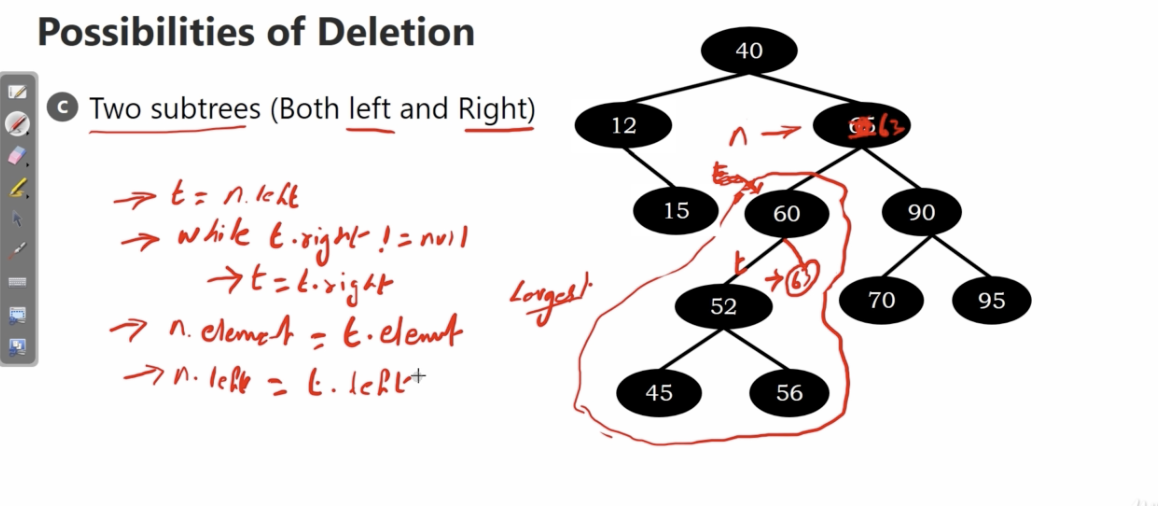 Possibilities of Deletion
C Two subtrees (Both left and Right)
→ t = n.left
→ while t.right != null
→ t = t.right
→ n.element = t.element
→ n.left = t.left
Largest
40
12
n → 65 63
t
15
60
90
t
→ 63
52
70
95
45
56